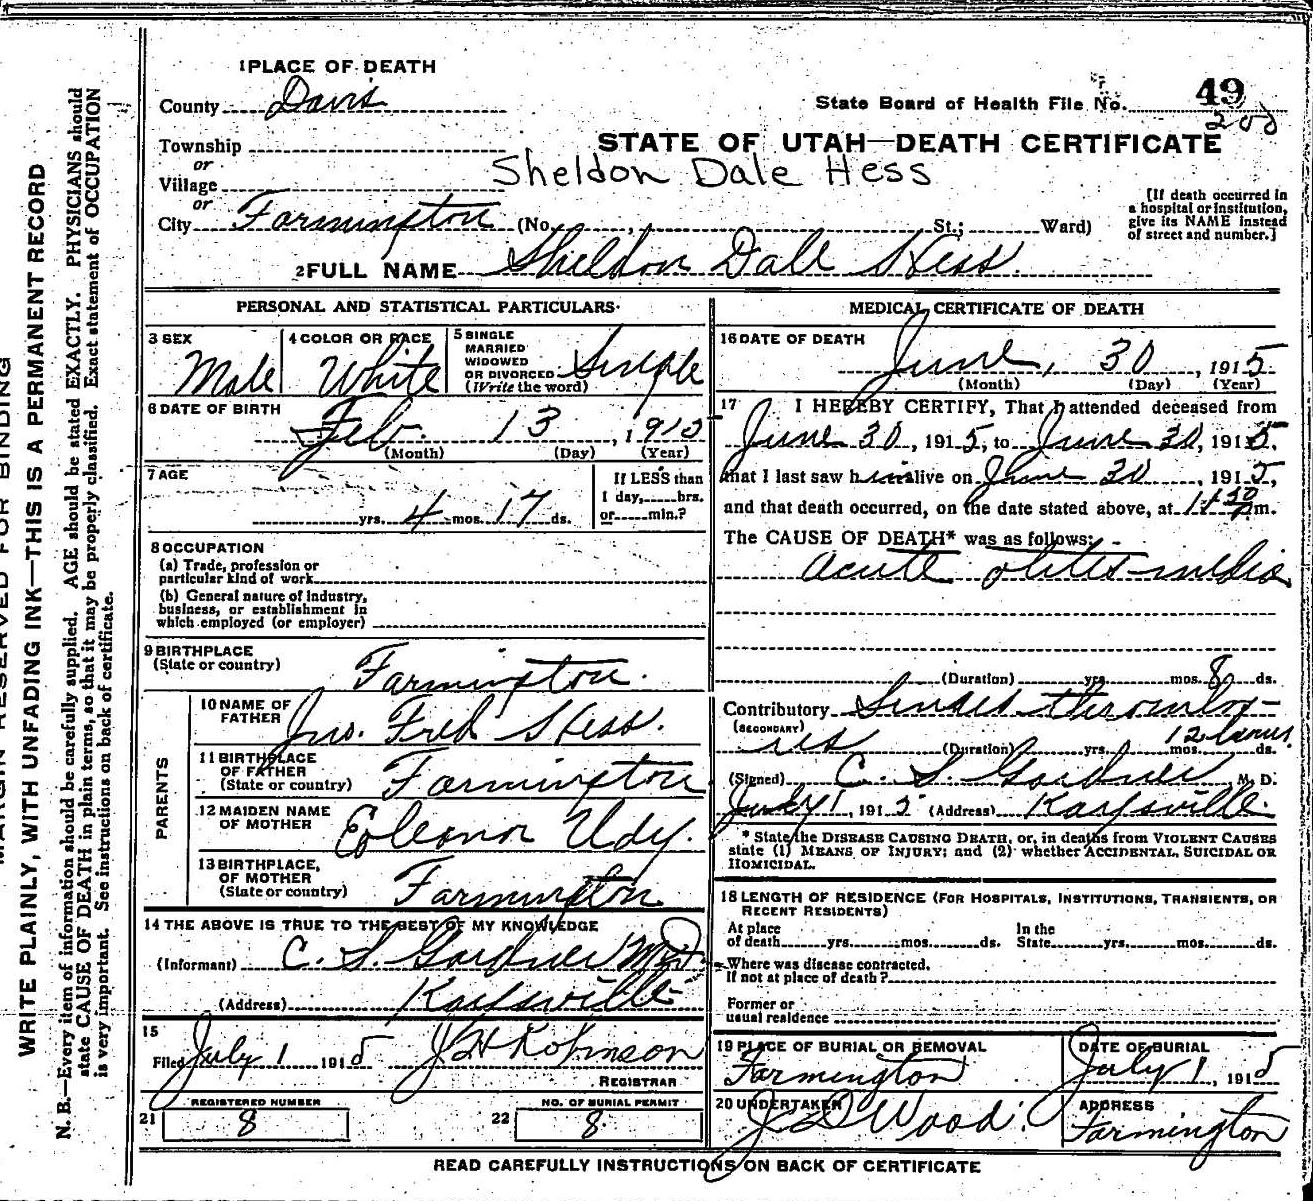 1 PLACE OF DEATH
County Davis
State Board of Health File No. 49
200
Township
or
Village
or
City Farmington (No. , St.; Ward)
STATE OF UTAH—DEATH CERTIFICATE
Sheldon Dale Hess
[If death occurred in
a hospital or institution,
give its NAME instead
of street and number.]
2 FULL NAME Sheldon Dale Hess.
PERSONAL AND STATISTICAL PARTICULARS
3 SEX
Male
4 COLOR OR RACE
White
5 SINGLE
MARRIED
WIDOWED
OR DIVORCED
(Write the word)
Single
6 DATE OF BIRTH
Feb. 13, 1915
(Month) (Day) (Year)
7 AGE
yrs. 4 mos. 17 ds.
If LESS than
1 day, hrs.
or min.?
8 OCCUPATION
(a) Trade, profession or
particular kind of work
(b) General nature of industry,
business, or establishment in
which employed (or employer)
9 BIRTHPLACE
(State or country)
Farmington.
PARENTS
10 NAME OF
FATHER
Jno. Fred Hess.
11 BIRTHPLACE
OF FATHER
(State or country)
Farmington
12 MAIDEN NAME
OF MOTHER
Eleanor Udy.
13 BIRTHPLACE,
OF MOTHER
(State or country)
Farmington
14 THE ABOVE IS TRUE TO THE BEST OF MY KNOWLEDGE
(Informant) C. S. Gardner M.D.
(Address) Kaysville
15
Filed July 1 1915 J H Robinson
REGISTRAR
21 REGISTERED NUMBER
8
22 NO. OF BURIAL PERMIT
8
MEDICAL CERTIFICATE OF DEATH
16 DATE OF DEATH
June, 30, 1915
(Month) (Day) (Year)
17 I HEREBY CERTIFY, That I attended deceased from
June 30, 1915, to June 30, 1915.
that I last saw him alive on June 30, 1915,
and that death occurred, on the date stated above, at m.
The CAUSE OF DEATH* was as follows:
acute otites-media
(Duration) yrs. mos. 8 ds.
Contributory Sinus thrombos-
(SECONDARY)
is (Duration) yrs. mos. 12 hours ds.
(Signed) C. S. Gardner M. D.
July 1, 1915 (Address) Kaysville.
* State the DISEASE CAUSING DEATH, or, in deaths from VIOLENT CAUSES
state (1) MEANS OF INJURY; and (2) whether ACCIDENTAL, SUICIDAL OR
HOMICIDAL.
18 LENGTH OF RESIDENCE (FOR HOSPITALS, INSTITUTIONS, TRANSIENTS, OR
RECENT RESIDENTS)
At place
of death yrs. mos. ds.
In the
State yrs. mos. ds.
Where was disease contracted.
If not at place of death?
Former or
usual residence
19 PLACE OF BURIAL OR REMOVAL
Farmington
DATE OF BURIAL
July 1, 1915
20 UNDERTAKER
J D Wood.
ADDRESS
Farmington
READ CAREFULLY INSTRUCTIONS ON BACK OF CERTIFICATE
MARGIN RESERVED FOR BINDING
WRITE PLAINLY, WITH UNFADING INK—THIS IS A PERMANENT RECORD
N. B.—Every item of information should be carefully supplied. AGE should be stated EXACTLY. PHYSICIANS should
state CAUSE OF DEATH in plain terms, so that it may be properly classified. Exact statement of OCCUPATION
is very important. See instructions on back of certificate.